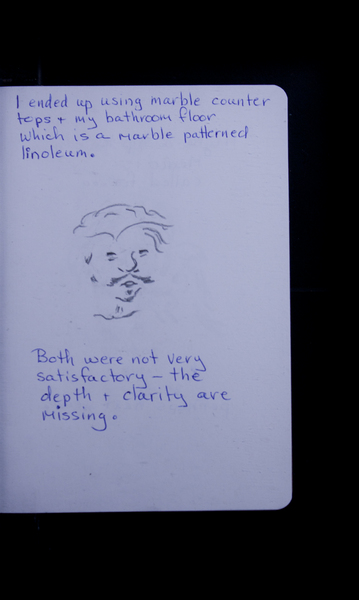 I ended up using marble counter
tops + my bathroom floor
which is a marble patterned
linoleum.
Both were not very
satisfactory – the
depth + clarity are
missing.